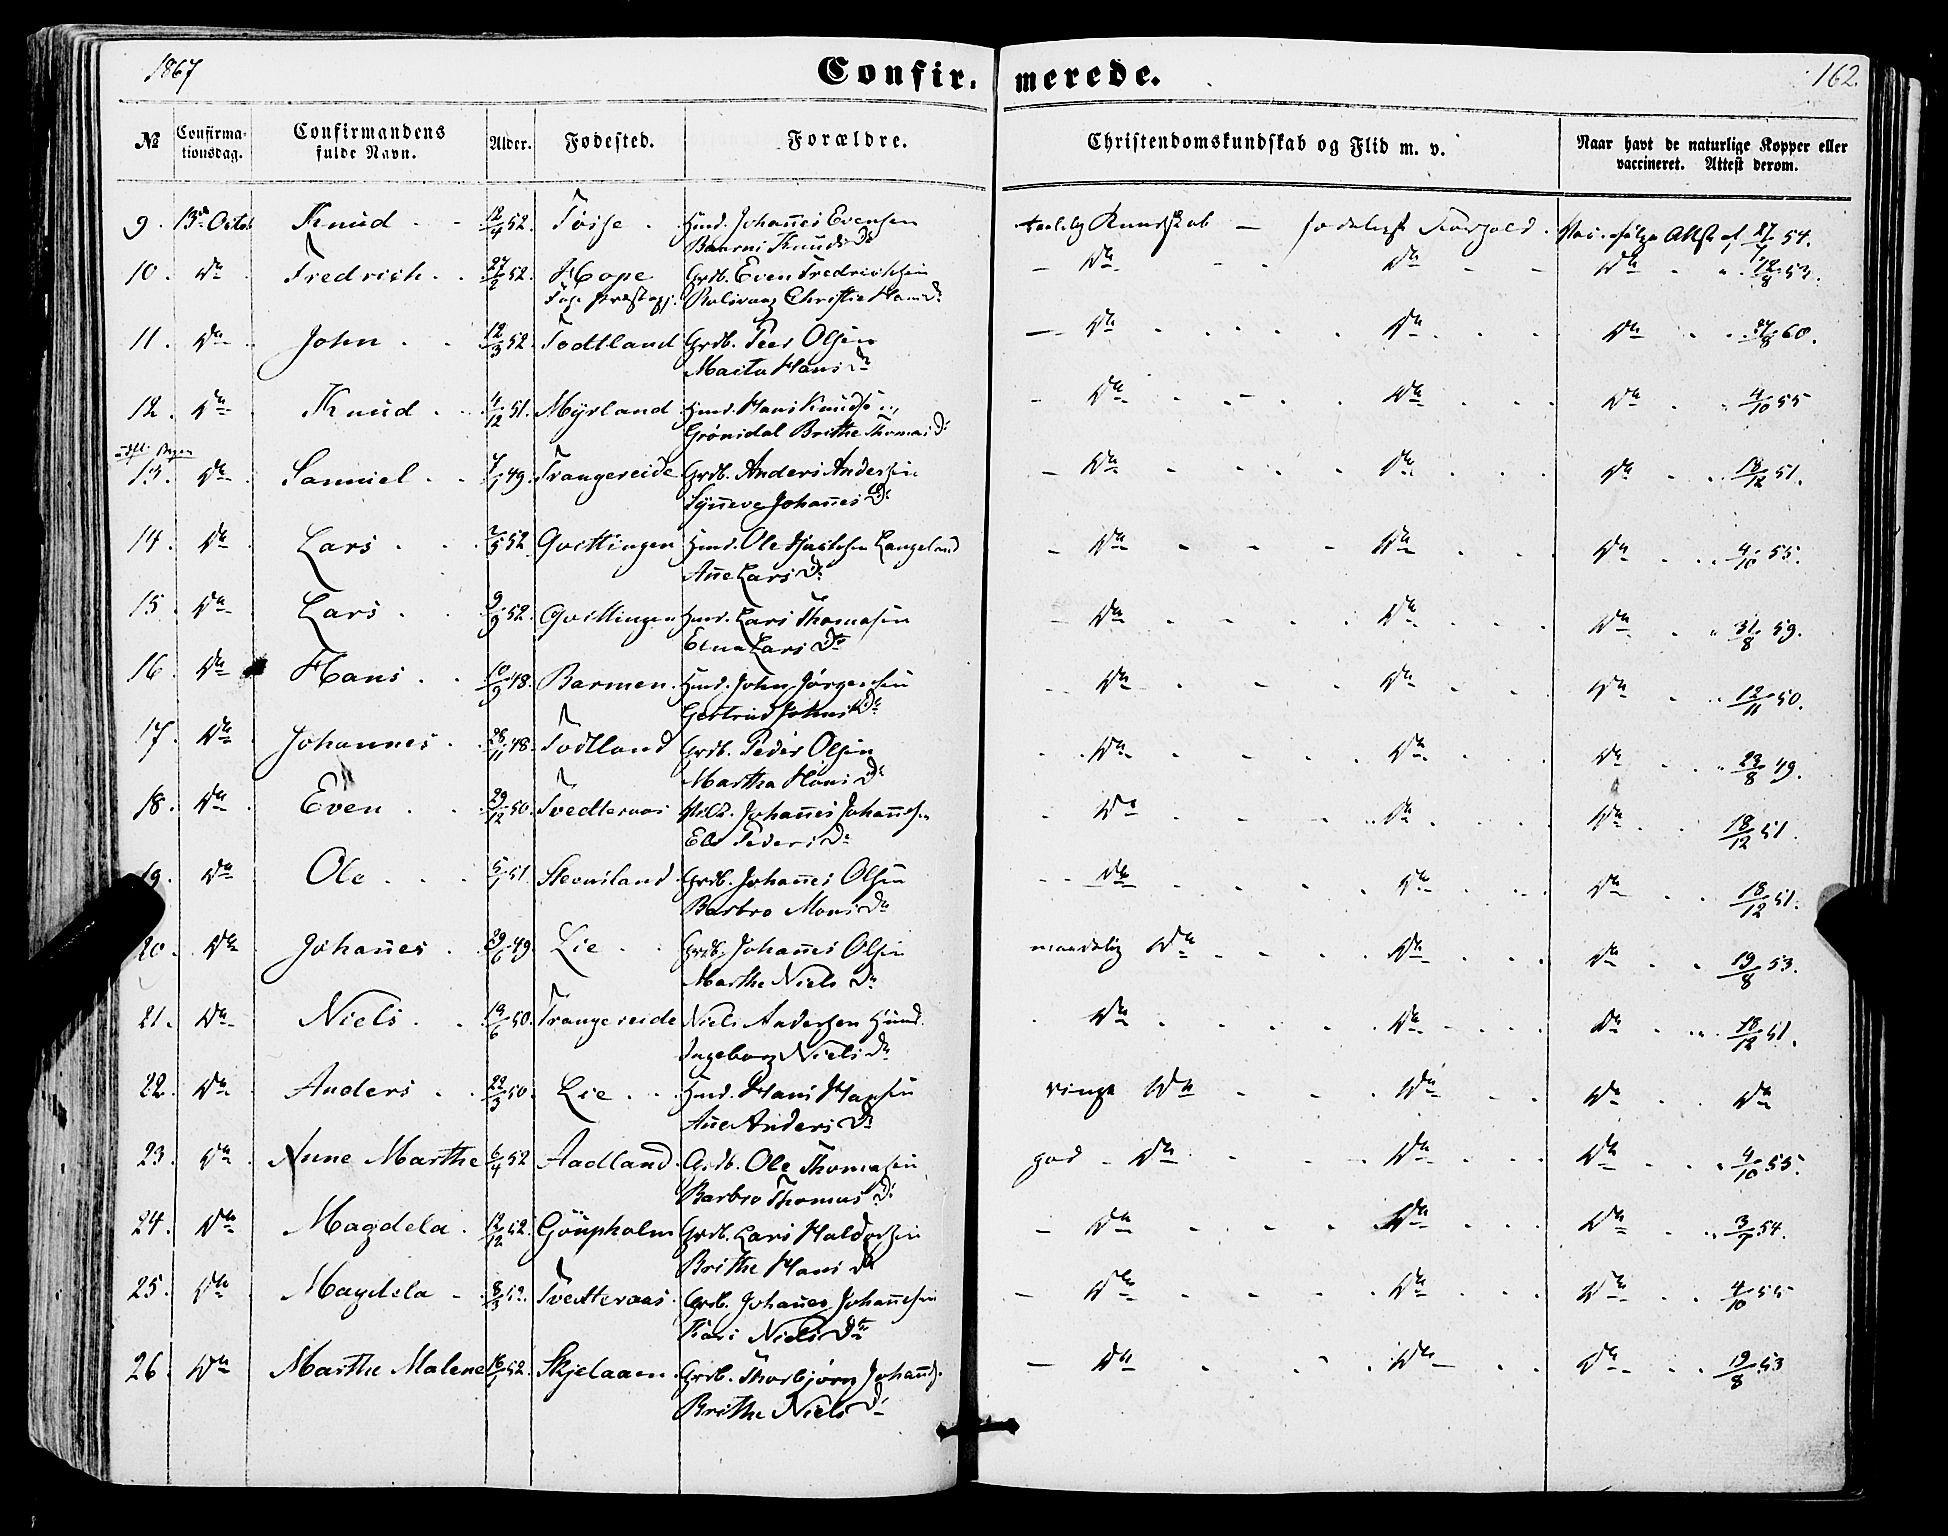 1867 Confirmerede. 162.
№ Confirmationsdag. Confirmandens fulde Navn. Alder. Fødested. Forældre. Christendomskundskab og Flid m. v. Naar havt de naturlige Kopper eller vaccineret. Attest derom.
9. 13de Octob Knud 12/4 52. Huusm. Johannes Evensen taalelig Kundskab — Forhold. 27/7 54.
Knuds Dr
10. Do Fredrich 27/2 52. Hope Grdb. Even Fredrichsen — Do Do Do 12/8 53.
Fuse Præstegj. Christie Hans Dr
11. Do John 12/3 52. Todtland Grdb. Peer Olsen — Do Do Do 27/8 60.
Marta Hans Dr
12. Do Knud 4/12 51. Myrland Huusm. Hans Knudsen — Do Do Do 4/10 55
Grønsdal Brithe Thomas Dr
13. Do Samuel 7/1 49. Trangereide Grdb. Anders Andersen — Do Do Do 18/12 51.
Syneve Johannes Dr
14. Do Lars 2/5 52. Qvittingen Huusm. Ole Langeland — Do Do Do 4/10 55.
Anne Lars Dr
15. Do Lars 9/9 52. Qvittingen Huusm. Lars Thomasen — Do Do Do 31/8 59.
Lars Dr
16. Do Hans 10/9 48. Barmen Huusm. John Jørgensen — Do Do Do 12/11 50.
Gertrud Johns Dr
17. Do Johannes 28/11 48. Todtland Grdb. Peder Olsen — Do Do Do 23/8 49.
Martha Hans Dr
18. Do Even 29/12 50. Tvedteraas Johannes Johannesen — Do Do Do 18/12 51.
Peders Dr
19. Do Ole 5/1 51. Steensland Grdb. Johannes Olsen — Do Do Do 18/12 51.
Barbro Mons Dr
20. Do Johannes 29/6 49. Lie Grdb. Johannes Olsen maadelig Do Do Do 19/8 53.
Marthe Niels Dr
21. Do Niels 19/6 50. Trangereide Niels Andersen Huusm. Do Do Do 18/12 51.
Ingeborg Niels Dr
22. Do Anders 22/3 50. Lie Huusm. Hans Hansen ringe Do Do Do Do
Anne Anders Dr
23. Do Anne Marthe 6/4 52 Aadland Grdb. Ole Thomasen god Do Do Do 4/10 55.
Barbro Thomas Dr
24. Do Magdela 12/12 52. Gjøupholm Grdb. Lars Haldorsen — Do Do Do 3/7 54.
Brithe Hans Dr
25. Do Magdela 8/3 52. Tvedteraas Grdb. Johannes Johannesen — Do Do Do 4/10 55
Kari Niels Dr
26. Do Marthe Malene 16/1 52. Skjelaaen Grdb. Thorbjørn Johannes. — Do Do Do 19/8 53
Brithe Niels Dr